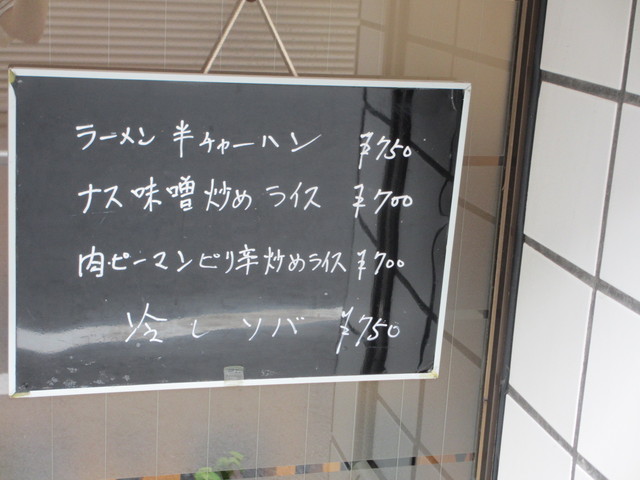 ラーメン 半チャーハン ¥750
ナス味噌炒め ライス ¥700
肉・ピーマンピリ辛炒めライス ¥700
冷しソバ ¥750